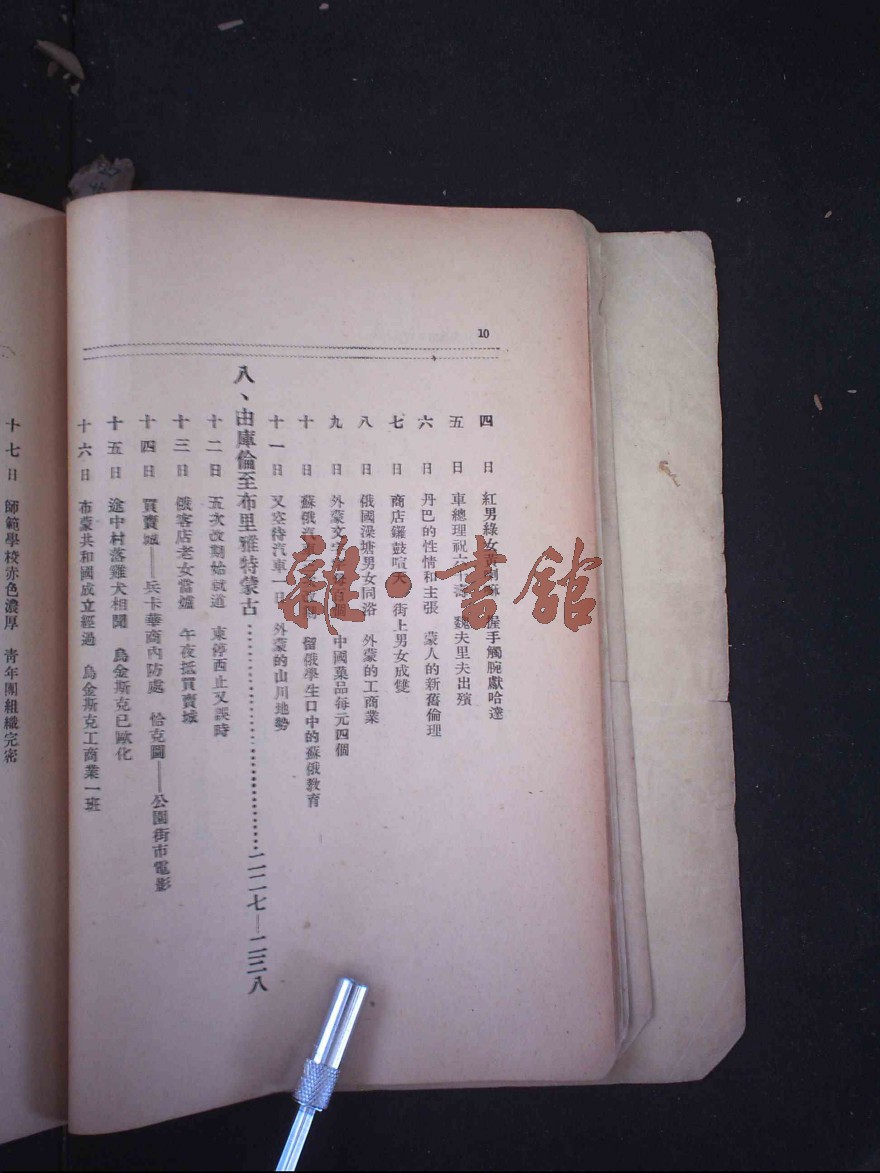 10
四日 紅男綠女黃喇嘛 握手觸腕獻哈達
五日 車總理祝 壽 魏夫里夫出殯
六日 丹巴的性情和主張 蒙人的新舊倫理
七日 商店鑼鼓喧天 街上男女成雙
八日 俄國澡塘男女同浴 外蒙的工商業
九日 外蒙文字 中國菜品每元四個
十日 蘇俄 留俄學生口中的蘇俄教育
十一日 又空待汽車一日 外蒙的山川地勢
八、由庫倫至布里雅特蒙古……二二七—二三八
十二日 五次改期始就道 東停西止又誤時
十三日 俄客店老女當爐 午夜抵買賣城
十四日 買賣城——兵卡華商內防處 恰克圖——公園街市電影
十五日 途中村落雞犬相聞 烏金斯克已歐化
十六日 布蒙共和國成立經過 烏金斯克工商業一班
十七日 師範學校赤色濃厚 青年團組織完密
雜·書館